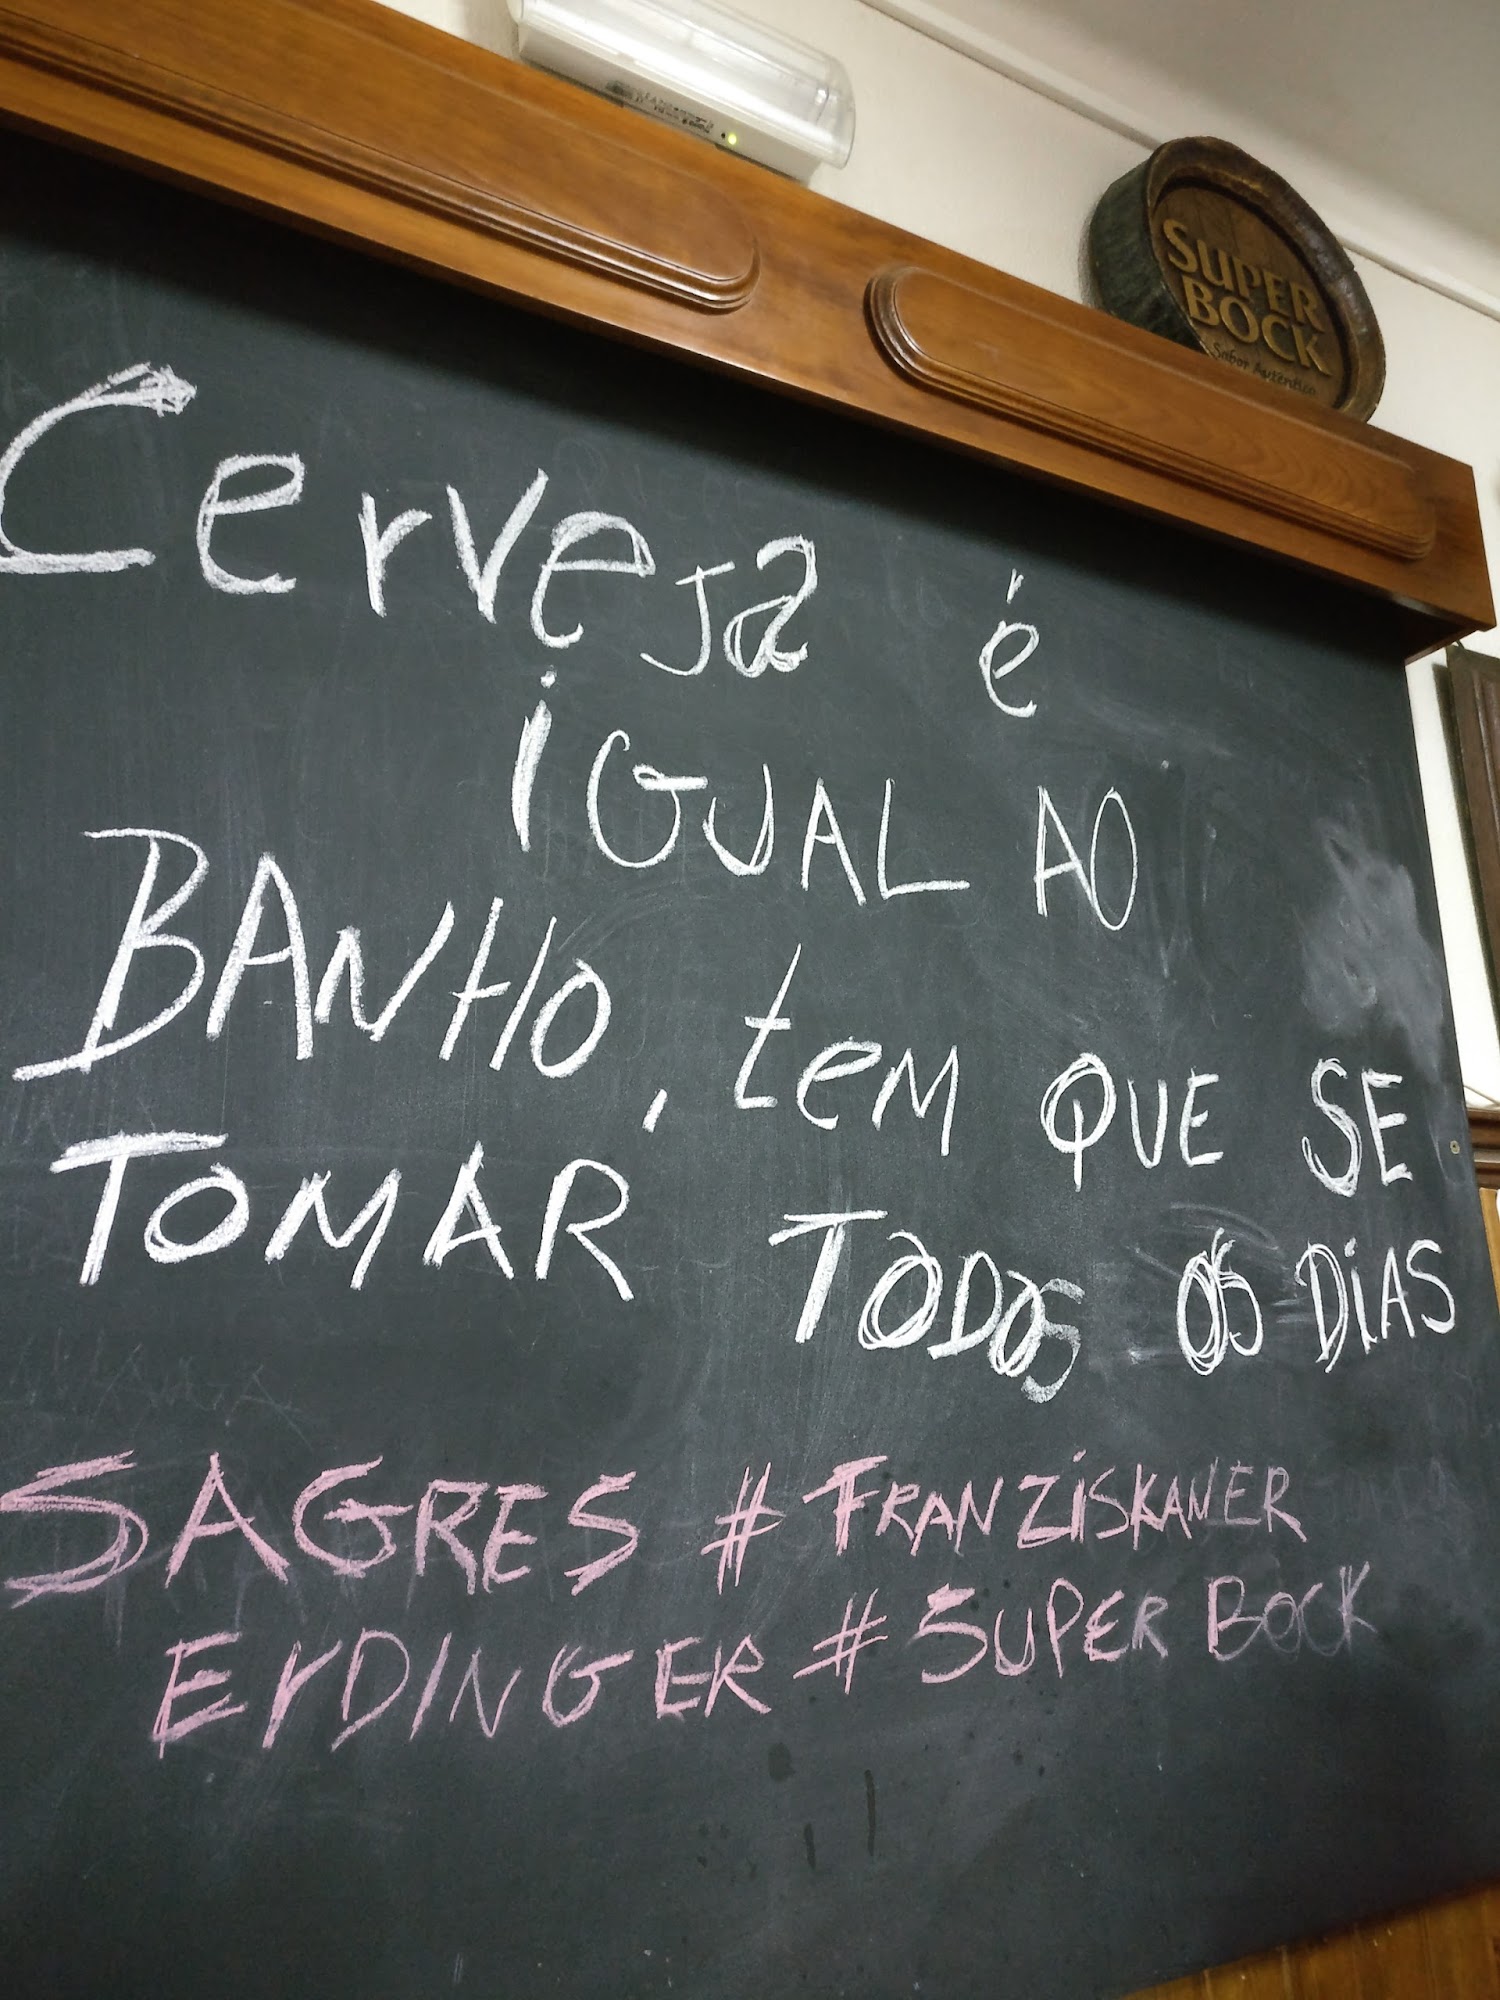 SUPER
BOCK
Sabor Autêntico
Cerveja é
iGUAL AO
BANHO, tem QUE SE
TOMAR TODOS OS DiAS
SAGRES # FRANZiSKANER
ErDINGER # SUPER BOCK